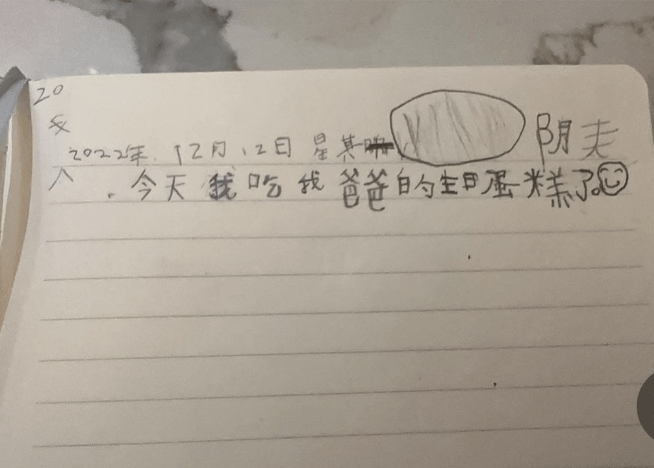 20
2022年. 12月 12日 星其 阴夫
人 . 今天我吃我爸爸的生日蛋糕了。